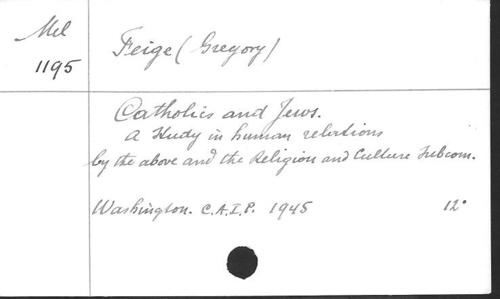 Mel
1195
Feige (Gregory)
Catholics and Jews.
A Study in human relations
by the above and the Religion and Culture Subcom.
Washington. C.A.I.P. 1945 12°